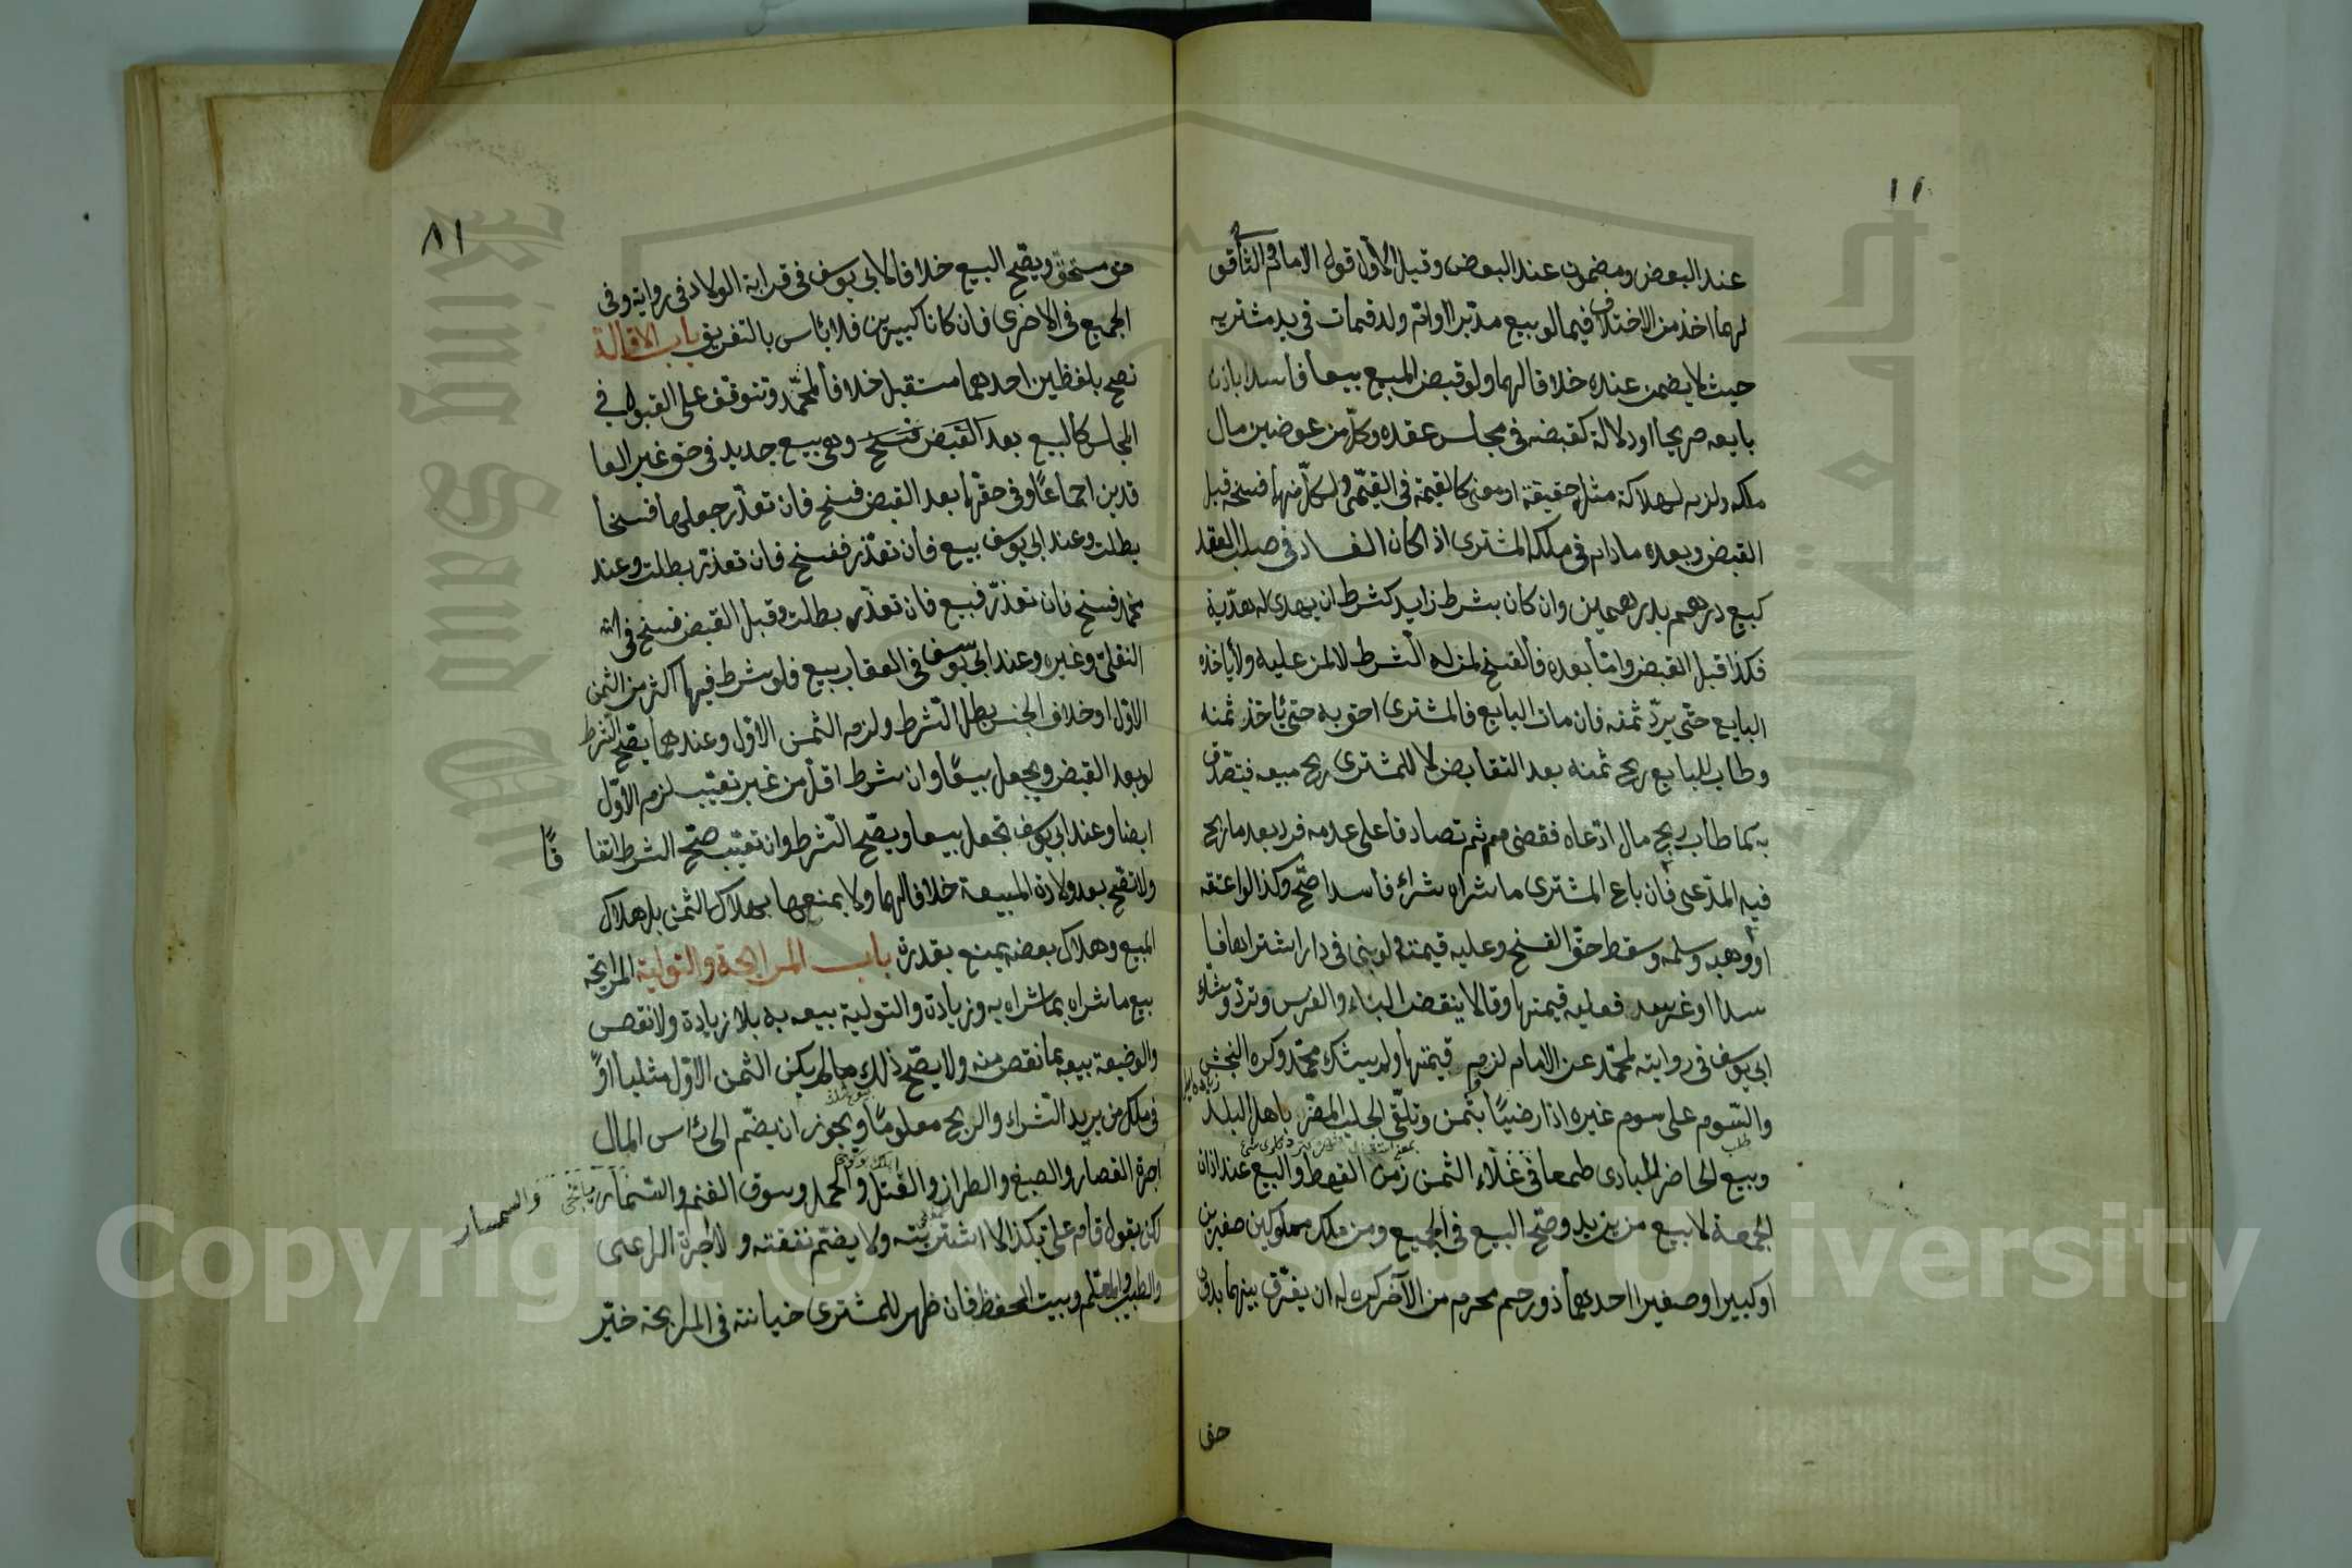 عند البعض ومضمون عند البعض وقيل الأول قول الامام والثاني قو
لهما اخذ من الاختلاف فيما لو بيع مدبر او ام ولد فمات في يد مشتريه
حيث لا يضمن عنده خلافا لهما ولو قبض المبيع بيعا فاسدا باذن
بايعه صريحا او دلالة كقبضه في مجلس عقده وكل من عوضيه مال
ملكه ولزمه لهلاكه مثله حقيقة او معنى كالقيمة في القيمي ولكل منهما فسخه قبل
القبض وبعده مادام في ملك المشتري اذا كان الفساد في صلب العقد
كبيع درهم بدرهمين وان كان بشرط زايد كشرط ان يهدى له هدية
فكذا قبل القبض واما بعده فالفسخ لمن له الشرط لا لمن عليه ولا ياخذه
البايع حتى يرد ثمنه فان مات البايع فالمشتري احق به حتى ياخذ ثمنه
وطاب للبايع ربح ثمنه بعد التقابض لا للمشتري ربح مبيعه فيتصدق
به كما طاب ربح مال ادعاه فقضى ثم تصادقا على عدمه فرد بعد ما ربح
فيه المدعى فان باع المشتري ما شراه شراء فاسدا صح وكذا لو اعتقه
او وهبه وسلمه وسقط حق الفسخ وعليه قيمته ولو بنى في دار اشتراها فا
سدا او غرس فعليه قيمتها وقالا ينقض البناء والغرس وترد وشك
ابي يوسف في روايته لمحمد عن الامام لزوم قيمتها ولم يشك محمد وكره النجش
والسوم على سوم غيره اذا رضيا بثمن وتلقى الجلب المضر باهل البلد
وبيع الحاضر للبادى طمعا في غلاء الثمن زمن القحط والبيع عند اذان
الجمعة لا بيع من يزيد وصح البيع في الجميع ومن ملك مملوكين صغيرين
او كبيرا وصغيرا احدهما ذو رحم محرم من الآخر كره له ان يفرق بينهما بدون
حق
٨١
حق مستحق ويصح البيع خلافا لابي يوسف في قرابة الولاد في رواية وفي
الجميع في الاخرى فان كانا كبيرين فلا باس بالتفريق باب الاقالة
تصح بلفظين احدهما مستقبل خلافا لمحمد وتتوقف على القبول في
المجلس كالبيع بعد القبض فسخ وهي بيع جديد في حق غير العا
قدين اجماعا وفي حقهما بعد القبض فسخ فان تعذر جعلها فسخا
بطلت وعند ابي يوسف بيع فان تعذر ففسخ فان تعذر بطلت وعند
محمد فسخ فان تعذر فبيع فان تعذر بطلت وقبل القبض فسخ في
النقلي وغيره وعند ابي يوسف في العقار بيع فلو شرط فيها اكثر من الثمن
الاول او خلاف الجنس بطل الشرط ولزم الثمن الاول وعندهما يصح الشرط
لو بعد القبض ويجعل بيعا وان شرط اقل من غير تعيب لزم الاول
ايضا وعند ابي يوسف تجعل بيعا ويصح الشرط وان تعيب صح الشرط اتفا
قًا
ولا تصح بعد ولادة المبيعة خلافا لهما ولا يمنعها هلاك الثمن بل هلاك
المبيع وهلاك بعضه يمنع بقدره باب المرابحة والتولية المرابحة
بيع ما شراه بما شراه به وزيادة والتولية بيعه به بلا زيادة ولا نقص
والوضيعة بيعه بما نقص منه ولا يصح ذلك ما لم يكن الثمن الاول مثليا او
في ملك من يريد الشراء والربح معلوما ويجوز ان يضم الى راس المال
اجرة القصار والصبغ والطراز والفتل والحمل وسوق الغنم والسمسار
والسمسار
لكن يقول قام علي بكذا لا اشتريته ولا يضم نفقته ولا اجرة الراعى
والطبيب والمعلم وبيت الحفظ فان ظهر للمشتري خيانته في المرابحة خير
Copyright © King Saud University